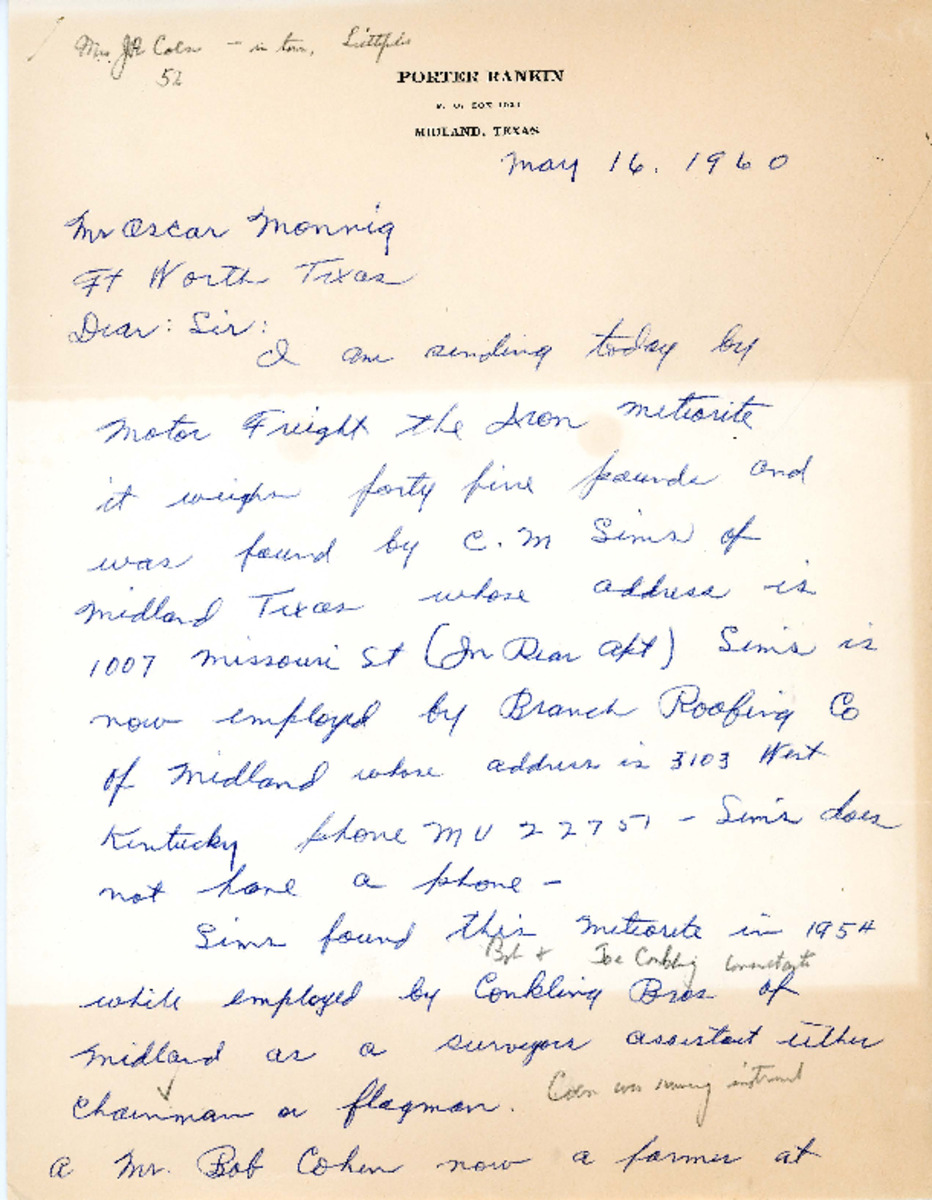 Mrs. JR Coen - in town, Littlefield
52
PORTER RANKIN
P. O. BOX
MIDLAND, TEXAS
May 16. 1960
Mr Oscar Monnig
Ft Worth Texas
Dear: Sir:
I am sending today by
Motor Freight the Iron meteorite
it weighs forty five pounds and
was found by C. M Sims of
Midland Texas whose address is
1007 Missouri St (In Rear Apt) Sims is
now employed by Branch Roofing Co
of Midland whose address is 3103 West
Kentucky phone MU 22751 - Sims does
not have a phone -
Sims found this Meteorite in 1954
Bob & Joe Conkling
while employed by Conkling Bros of
Midland as a surveyors assistant either
Chainman or flagman. Coen was running instrument
a Mr. Bob Cohen now a farmer at